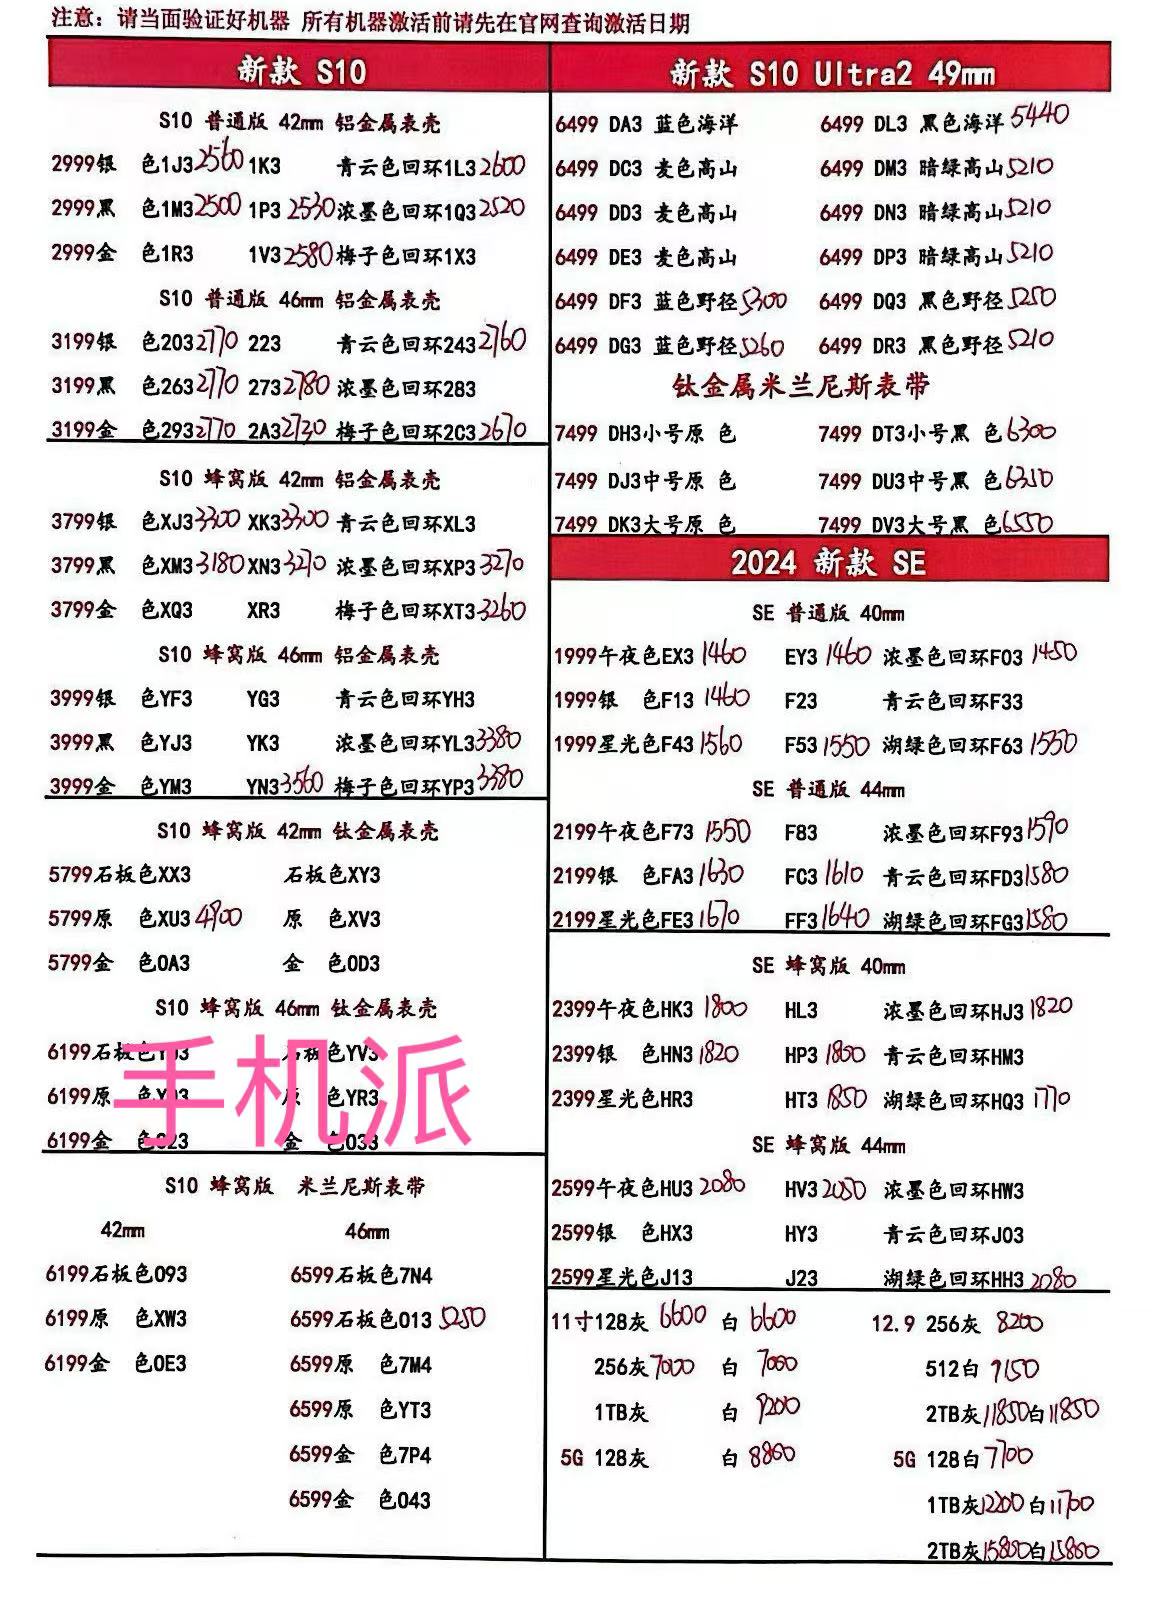 注意：请当面验证好机器 所有机器激活前请先在官网查询激活日期
新款 S10
S10 普通版 42mm 铝金属表壳
2999银 色1J3 2560 1K3 青云色回环1L3 2600
2999黑 色1M3 2500 1P3 2530 浓墨色回环1Q3 2520
2999金 色1R3 1V3 2580 梅子色回环1X3
S10 普通版 46mm 铝金属表壳
3199银 色203 2770 223 青云色回环243 2760
3199黑 色263 2770 273 2780 浓墨色回环283
3199金 色293 2770 2A3 2730 梅子色回环2C3 2670
S10 蜂窝版 42mm 铝金属表壳
3799银 色XJ3 3300 XK3 3300 青云色回环XL3
3799黑 色XM3 3180 XN3 3270 浓墨色回环XP3 3270
3799金 色XQ3 XR3 梅子色回环XT3 3260
S10 蜂窝版 46mm 铝金属表壳
3999银 色YF3 YG3 青云色回环YH3
3999黑 色YJ3 YK3 浓墨色回环YL3 3380
3999金 色YM3 YN3 3560 梅子色回环YP3 3380
S10 蜂窝版 42mm 钛金属表壳
5799石板色XX3 石板色XY3
5799原 色XU3 4900 原 色XV3
5799金 色0A3 金 色0D3
S10 蜂窝版 46mm 钛金属表壳
6199石板色 石板色YV3
6199原 色 原 色YR3
6199金 色 金 色033
手机派
S10 蜂窝版 米兰尼斯表带
42mm 46mm
6199石板色093 6599石板色7N4
6199原 色XW3 6599石板色013 5250
6199金 色0E3 6599原 色7M4
6599原 色YT3
6599金 色7P4
6599金 色043
新款 S10 Ultra2 49mm
6499 DA3 蓝色海洋 6499 DL3 黑色海洋 5440
6499 DC3 麦色高山 6499 DM3 暗绿高山 5210
6499 DD3 麦色高山 6499 DN3 暗绿高山 5210
6499 DE3 麦色高山 6499 DP3 暗绿高山 5210
6499 DF3 蓝色野径 5300 6499 DQ3 黑色野径 5250
6499 DG3 蓝色野径 5260 6499 DR3 黑色野径 5210
钛金属米兰尼斯表带
7499 DH3小号原 色 7499 DT3小号黑 色 6300
7499 DJ3中号原 色 7499 DU3中号黑 色 6350
7499 DK3大号原 色 7499 DV3大号黑 色 6550
2024 新款 SE
SE 普通版 40mm
1999午夜色EX3 1460 EY3 1460 浓墨色回环F03 1450
1999银 色F13 1460 F23 青云色回环F33
1999星光色F43 1560 F53 1550 湖绿色回环F63 1550
SE 普通版 44mm
2199午夜色F73 1550 F83 浓墨色回环F93 1590
2199银 色FA3 1630 FC3 1610 青云色回环FD3 1580
2199星光色FE3 1670 FF3 1640 湖绿色回环FG3 1580
SE 蜂窝版 40mm
2399午夜色HK3 1800 HL3 浓墨色回环HJ3 1820
2399银 色HN3 1820 HP3 1850 青云色回环HM3
2399星光色HR3 HT3 1850 湖绿色回环HQ3 1770
SE 蜂窝版 44mm
2599午夜色HU3 2080 HV3 2050 浓墨色回环HW3
2599银 色HX3 HY3 青云色回环J03
2599星光色J13 J23 湖绿色回环HH3 2080
11寸128灰 6600 白 6600 12.9 256灰 8200
256灰 7000 白 7000 512白 9150
1TB灰 白 9200 2TB灰 11850 白 11850
5G 128灰 白 8800 5G 128白 7700
1TB灰 12200 白 11700
2TB灰 15800 白 15800